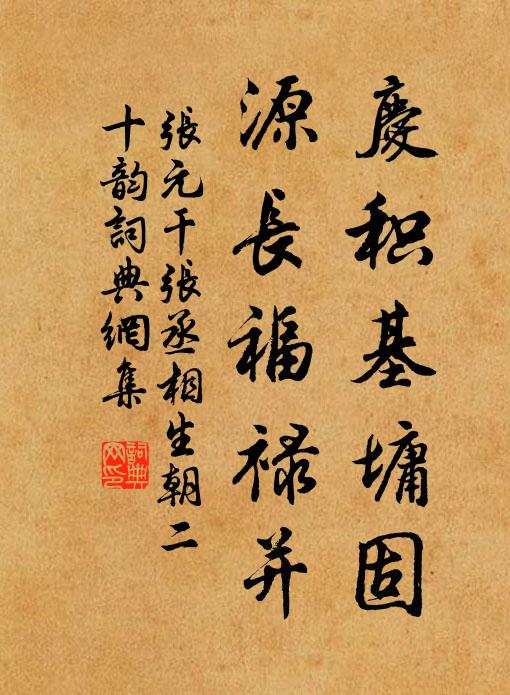 慶积基墉固
源長福禄并
張元干張丞相生朝二
十韵詞典網集
詞典网印